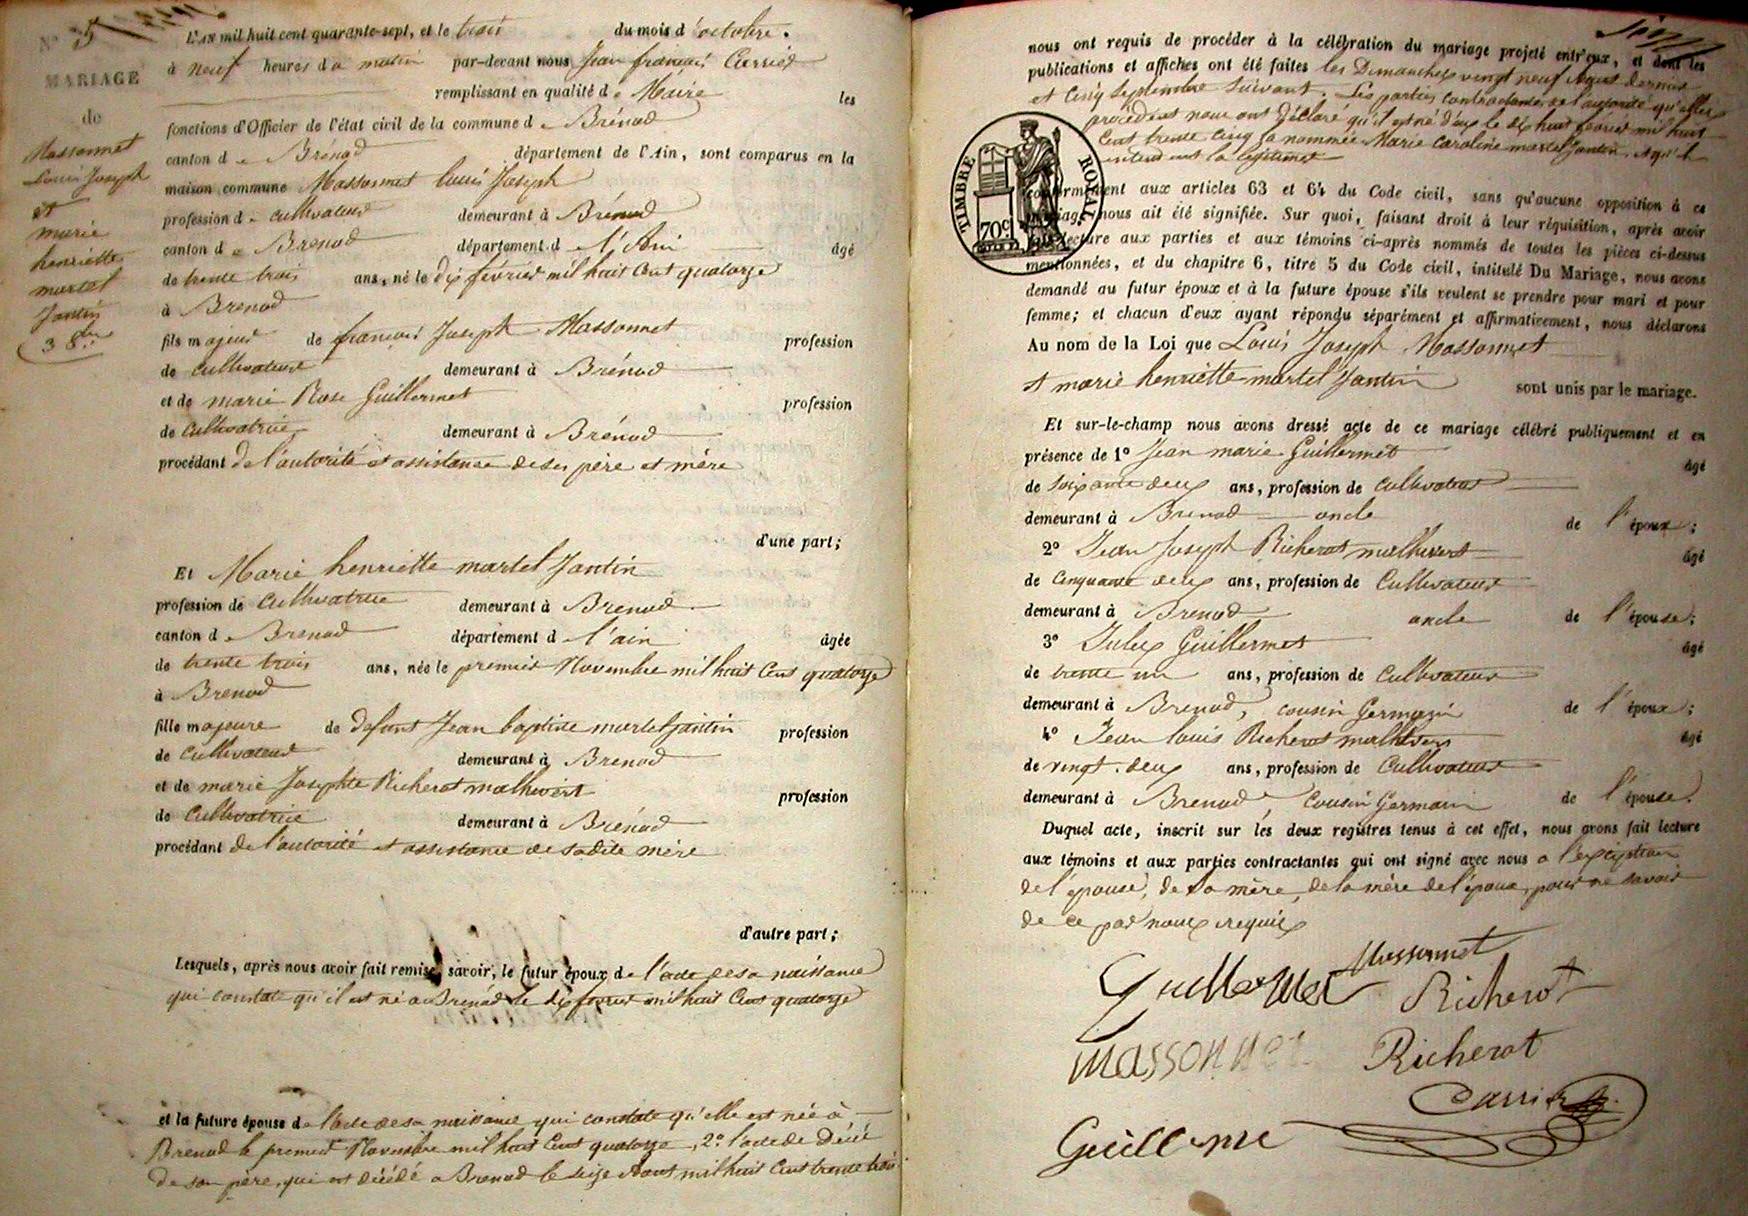 N° 5
MARIAGE
de
Massonnet
Louis Joseph
et
marie
henriette
martel
Jantin
3 8bre
L'AN mil huit cent quarante-sept, et le trois du mois d'octobre.
à neuf heures du matin par-devant nous Jean françois Carrier
remplissant en qualité de Maire les
fonctions d'Officier de l'état civil de la commune de Brénod
canton de Brénod département de l'Ain, sont comparus en la
maison commune Massonnet Louis Joseph
profession de cultivateur demeurant à Brénod
canton de Brenod département de l'Ain âgé
de trente trois ans, né le dix février mil huit Cent quatorze
à Brenod
fils majeur de françois Joseph Massonnet profession
de cultivateur demeurant à Brénod
et de marie Rose Guillermet profession
de cultivatrice demeurant à Brénod
procédant de l'autorité et assistance de ses père et mère
d'une part;
Et Marie henriette martel Jantin
profession de cultivatrice demeurant à Brenod
canton de Brenod département de l'ain âgée
de trente trois ans, née le premier Novembre mil huit Cent quatorze
à Brenod
fille majeure de defunt Jean baptiste martel Jantin profession
de cultivateur demeurant à Brenod
et de marie Josephte Richerot malhivert profession
de cultivatrice demeurant à Brénod
procédant de l'autorité et assistance de sadite mère
d'autre part;
Lesquels, après nous avoir fait remise, savoir, le futur époux de l'acte de sa naissance
qui constate qu'il est né à Brenod le dix fevrier mil huit Cent quatorze
et la future épouse de l'acte de sa naissance qui constate qu'elle est née à
Brenod le premier Novembre mil huit Cent quatorze, 2° l'acte de Décès
de son père, qui est décédé à Brenod le seize Aout mil huit Cent trente trois
nous ont requis de procéder à la célébration du mariage projeté entr'eux, et dont les
publications et affiches ont été faites les Dimanches vingt neuf Aout dernier
et Cinq Septembre Suivant. Les parties contractantes de l'autorité qu'elles
procèdent nous ont déclaré qu'il est né d'eux le dix huit février mil huit
Cent trente cinq la nommée Marie Caroline martel Jantin. Et qu'ils
entendent la legitimer
TIMBRE ROYAL
70c
conformément aux articles 63 et 64 du Code civil, sans qu'aucune opposition à ce
mariage nous ait été signifiée. Sur quoi, faisant droit à leur réquisition, après avoir
lecture aux parties et aux témoins ci-après nommés de toutes les pièces ci-dessus
mentionnées, et du chapitre 6, titre 5 du Code civil, intitulé Du Mariage, nous avons
demandé au futur époux et à la future épouse s'ils veulent se prendre pour mari et pour
femme; et chacun d'eux ayant répondu séparément et affirmativement, nous déclarons
Au nom de la Loi que Louis Joseph Massonnet
et marie henriette martel Jantin sont unis par le mariage.
Et sur-le-champ nous avons dressé acte de ce mariage célébré publiquement et en
présence de 1° Jean marie Guillermet âgé
de soixante deux ans, profession de cultivateur
demeurant à Brenod oncle de l'époux;
2° Jean Joseph Richerot malhivert âgé
de Cinquante deux ans, profession de Cultivateur
demeurant à Brenod oncle de l'épouse;
3° Jules Guillermet âgé
de trente un ans, profession de Cultivateur
demeurant à Brenod, cousin Germain de l'époux;
4° Jean Louis Richerot malhivert âgé
de vingt-deux ans, profession de Cultivateur
demeurant à Brenod, Cousin Germain de l'épouse.
Duquel acte, inscrit sur les deux registres tenus à cet effet, nous avons fait lecture
aux témoins et aux parties contractantes qui ont signé avec nous à l'exception
de l'épouse, de sa mère, de la mère de l'époux, pour ne savoir
de ce par nous requis
Massonnet
Guillermet
Richerot
Massonnet
Richerot
Carrier
Guillerme